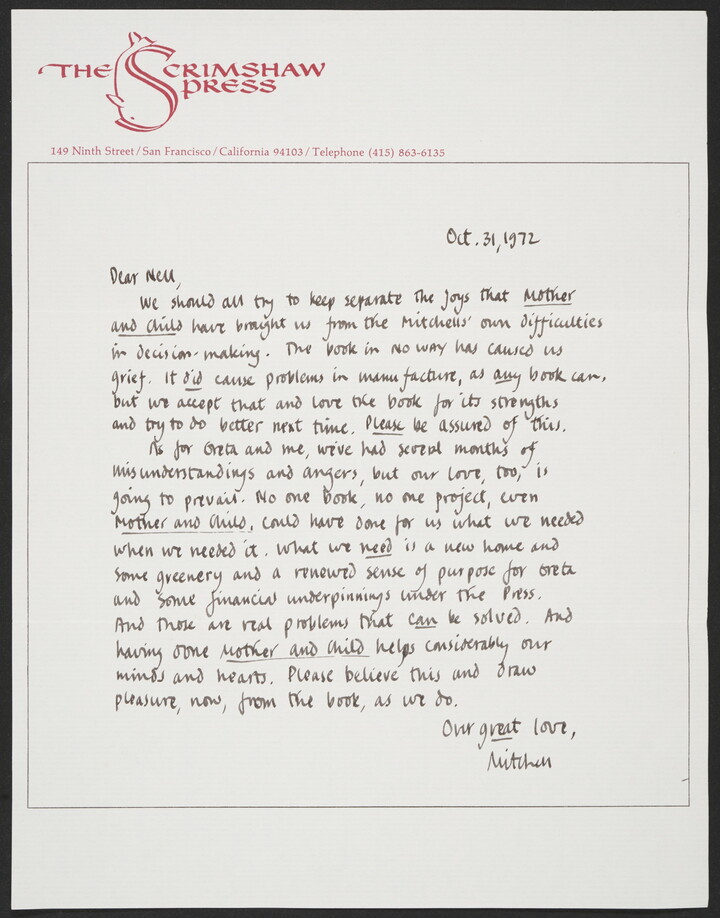 THE SCRIMSHAW
PRESS
149 Ninth Street / San Francisco / California 94103 / Telephone (415) 863-6135
Oct. 31, 1972
Dear Nell,
We should all try to keep separate the joys that Mother
and Child have brought us from the Mitchells' own difficulties
in decision-making. The book in NO WAY has caused us
grief. It did cause problems in manufacture, as any book can,
but we accept that and love the book for its strengths
and try to do better next time. Please be assured of this.
As for Greta and me, we've had several months of
misunderstandings and angers, but our love, too, is
going to prevail. No one book, no one project, even
Mother and Child, could have done for us what we needed
when we needed it. What we need is a new home and
some greenery and a renewed sense of purpose for Greta
and some financial underpinnings under the Press.
And those are real problems that can be solved. And
having done Mother and Child helps considerably our
minds and hearts. Please believe this and draw
pleasure, now, from the book, as we do.
Our great love,
Mitchell